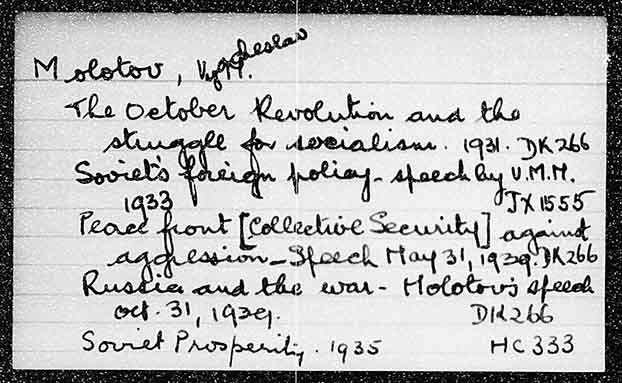 Molotov, Vyacheslav M.
The October Revolution and the
struggle for socialism. 1931. DK266
Soviet's foreign policy - speech by V.M.M.
1933 JX1555
Peace front [Collective Security] against
aggression - Speech May 31, 1939. DK266
Russia and the war - Molotov's speech
oct. 31, 1939. DK266
Soviet Prosperity. 1935 HC333